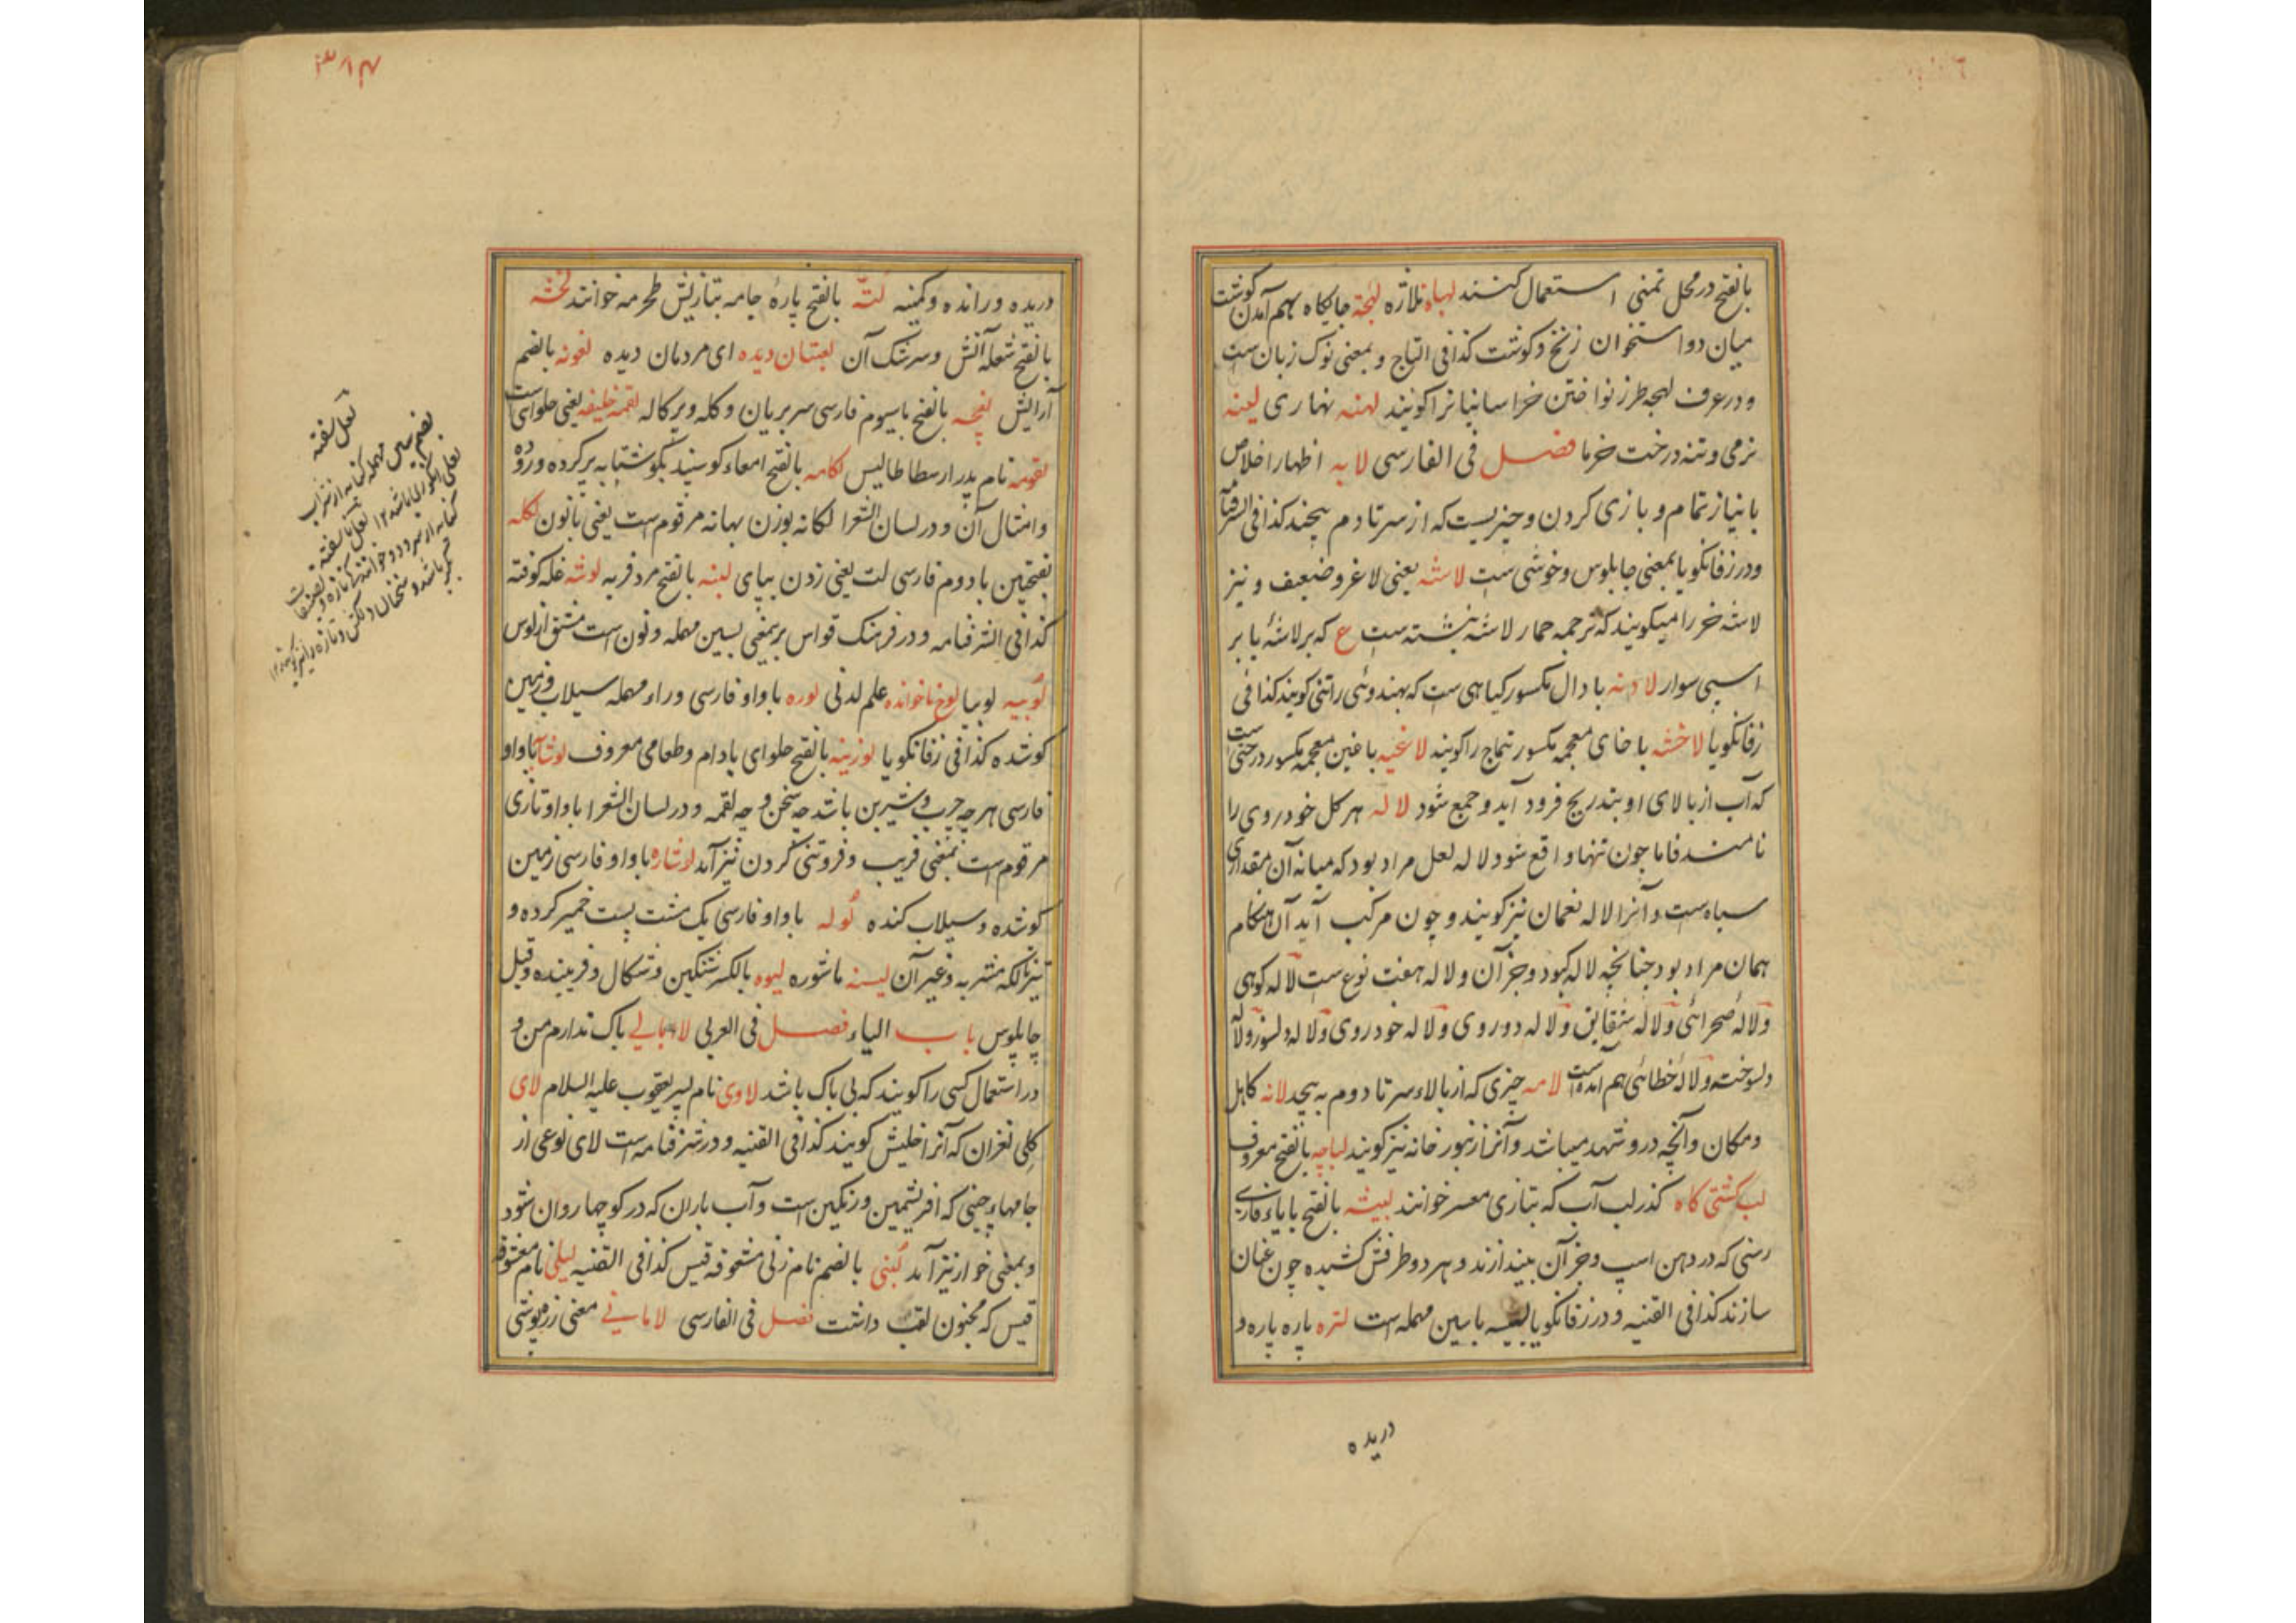 بالفتح در محل تمنی استعمال کنند لهاة ملازه لهجة جایگاه بهم آمدن گوشت
میان دو استخوان زنخ و گوشت کذا فی التاج و بمعنی نوک زبان ست
و در عرف لهجه طرز نواختن خراسانیانرا کویند لهنه نهاری لینه
نرمی و تنه درخت خرما فصل فی الفارسی لابه اظهار اخلاص
با نیاز تمام و بازی کردن و چیزیست که از سر تا دم پیچند کذا فی الشرفنامه
و در زفانکویا بمعنی چابلوس و خوشی ست لاشه یعنی لاغر و ضعیف و نیز
لاشه خر را میکویند که ترجمه حمار لاشه نبشته ست ع که بر لاشهٔ با بر
اسپی سوار لادنه با دال مکسور کیاهی ست که بهندوئی راتنی کویند کذا فی
زفانکویا لاخشه با خای معجمه مکسور تتماج را کویند لاغیه با غین معجمه مکسور درختی ست
که آب از بالای او بتدریج فرود آید و جمع شود لاله هر کل خودروی را
نامند فاما چون تنها واقع شود لاله لعل مراد بود که میانه آن مقداری
سیاه ست و آنرا لاله نعمان نیز کویند و چون مرکب آید آن هنکام
همان مراد بود چنانچه لاله کبود و جز آن و لاله هفت نوع ست لاله کوهی
و لالهٔ صحرائی و لاله شقایق و لاله دوروی و لاله خودروی و لاله دلسوز و لاله
دلسوخته و لالهٔ خطائی هم آمده است لامه چیزی که از بالاء سر تا دوم به پیچد لانه کاهل
و مکان و آنچه درو شهد میباشد و آنرا زنبور خانه نیز کویند لباچه بالفتح معروف
لب کشتی کاه کذر لب آب که بتازی معبر خوانند لبیشه بالفتح با یاء فارسی
رسنی که در دهن اسپ و جز آن بیندازند و بهر دو طرفش کشیده چون عنان
سازند کذا فی القنیه و در زفانکویا لبیسه با سین مهمله است لتره پاره پاره و
دریده
۳۱۴
دریده و رانده و کمینه لتّه بالفتح پارهٔ جامه بتازیش طحرمه خوانند لخشه
بالفتح شعله آتش و سرشک آن لعبتان دیده ای مردمان دیده لغونه بالضم
آرایش لفچه بالفتح با سیوم فارسی سر بریان و کله و پرکاله لقمه خلیفه یعنی حلوای ست
لقومه نام پدر ارسطاطالیس لکامه بالفتح امعاء کوسپند بکوشتابه پر کرده و روده
و امثال آن و در لسان الشعرا لکانه بوزن بهانه مرقوم است یعنی بانون لکله
بفتحتین با دوم فارسی لت یعنی زدن بپای لنبه بالفتح مرد فربه لوشه غله کوفته
کذا فی الشرفنامه و در فرهنک قواس بریمعنی بسین مهمله و نون است مشتق از لوس
لوبیه لوبیا لوح ناخوانده علم لدنی لوره با واو فارسی و راء مهمله سیلاب و زمین
کوشده کذا فی زفانکویا لوزینه بالفتح حلوای بادام و طعامی معروف لوشابه با واو
فارسی هر چه چرب و شیرین باشد چه سخن و چه لقمه و در لسان الشعرا با واو تازی
مرقوم است بمعنی فریب و فروتنی کردن نیز آمد لوشاره با واو فارسی زمین
کوشده و سیلاب کنده لوله با واو فارسی یک مشت پست خمیر کرده و
نیز نالکه مشربه و غیر آن لیسنه ماشوره لیوه بالکسر شنکین و شکال و فریبنده و قیل
چاپلوس باب الیاء فصل فی العربی لاابالی باک ندارم من و
در استعمال کسی را کویند که بی باک باشد لاوی نام پسر یعقوب علیه السلام لای
کلی نغران که آنرا خلیش کویند کذا فی القنیه و در شرفنامه است لای نوعی از
جامهاء چینی که ابریشمین و رنکین است و آب باران که در کوچها روان شود
و بمعنی خوار نیز آمد لُبنی بالضم نام زنی معشوقه قیس کذا فی القنیه لیلی نام معشوقه
قیس که مجنون لقب داشت فصل فی الفارسی لامانی معنی زره پوشی
لعل سفته
بضم سین مهمله کنایه از شراب
لعلی انکوری باشد ۱۲ لعل ناسفته